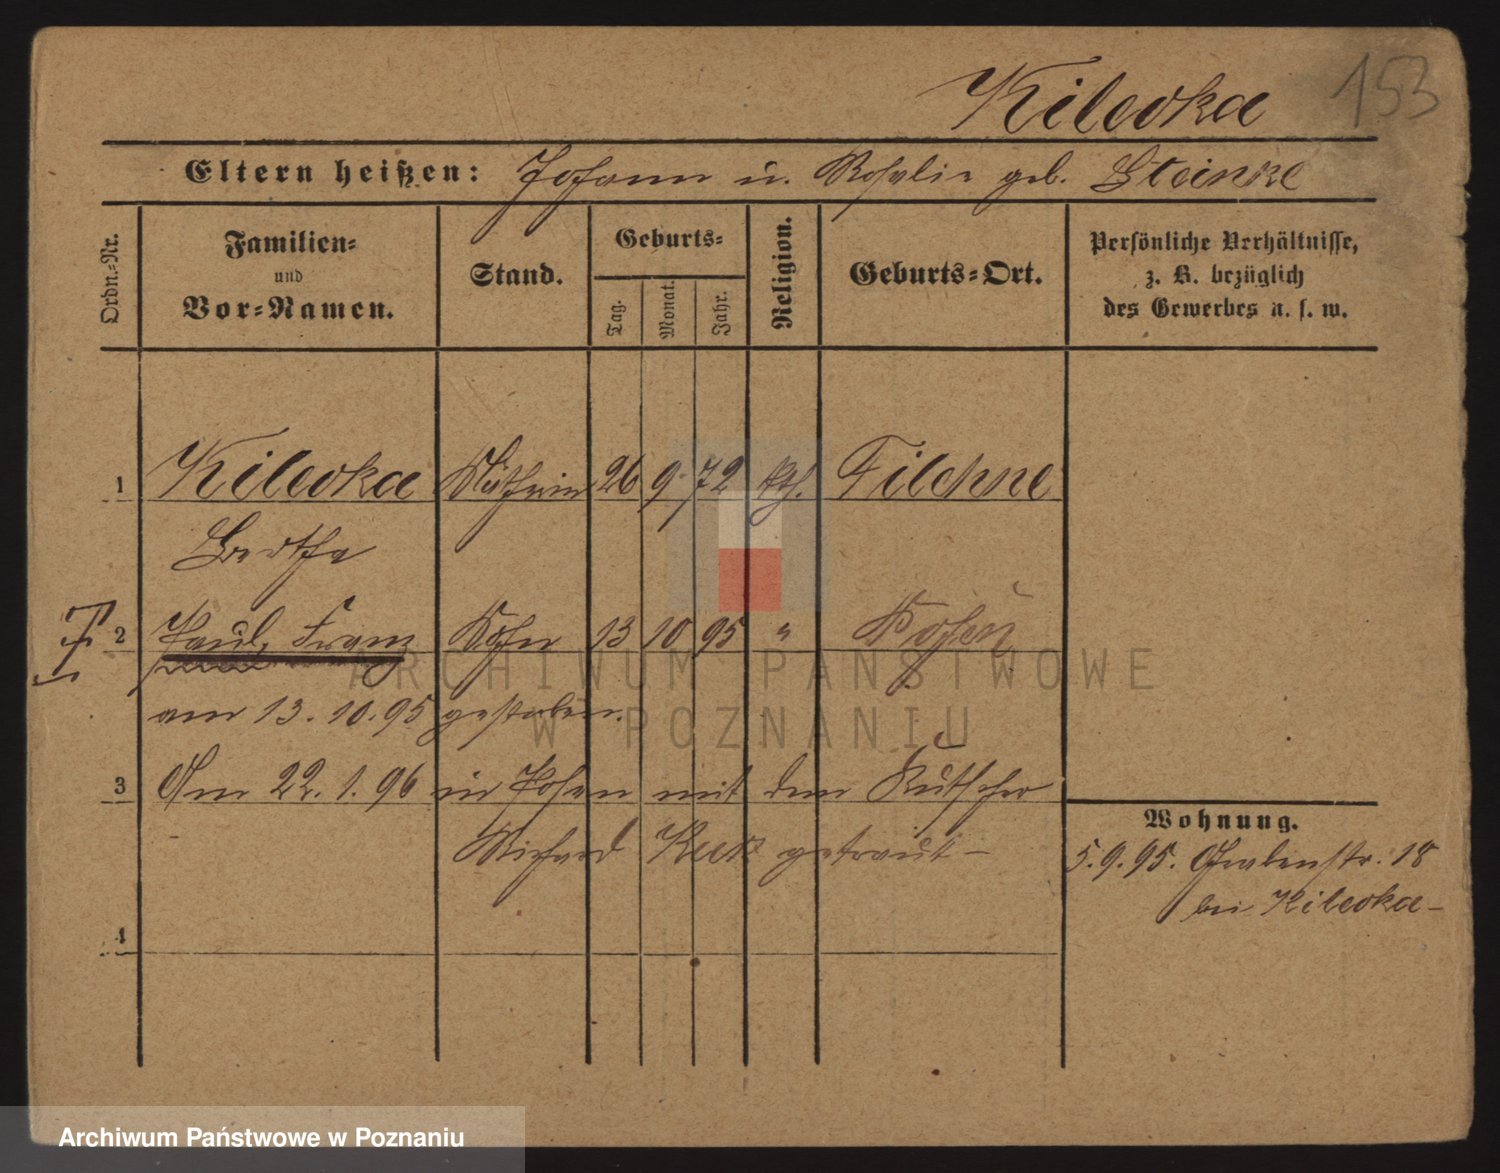 Kilevka 153
Eltern heißen: Johann u. Rosalie geb. Steinke
Ordn.-Nr.
Familien-
und
Vor-Namen.
Stand.
Geburts-
Tag.
Monat.
Jahr.
Religion.
Geburts-Ort.
Persönliche Verhältnisse,
z. B. bezüglich
des Gewerbes u. s. w.
1 Kilevka 26 9. 72 kth. Filehne
Bertha
2 Paul, Franz Sohn 13 10 95 " Posen
am 13. 10. 95 gestorben.
3 Am 22. 1. 96 in Posen mit dem Kutscher
Richard getraut -
4
Wohnung.
5. 9. 95. Grabenstr. 18
bei Kilevka -
ARCHIWUM PAŃSTWOWE
W POZNANIU
Archiwum Państwowe w Poznaniu